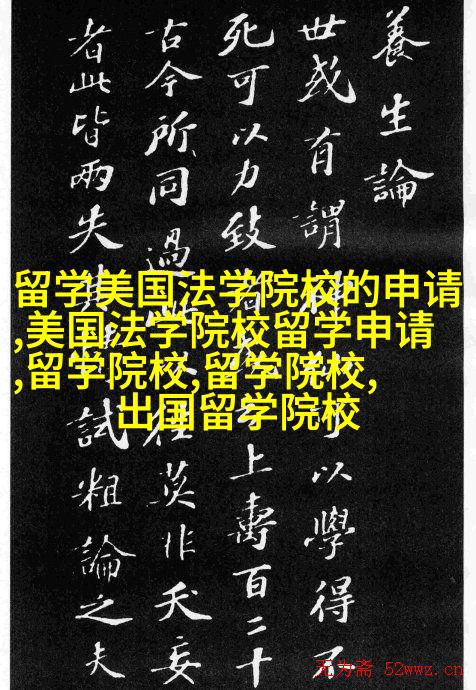 養生論
世或有謂神可以學得不
死可以力致者云上壽百二十
古今所同過此往莫非夭妄
者此皆兩失其試粗論之夫
留学美国法学院校的申请
,美国法学院校留学申请
,留学院校,留学院校,
出国留学院校
无为斋 52wwz.cn